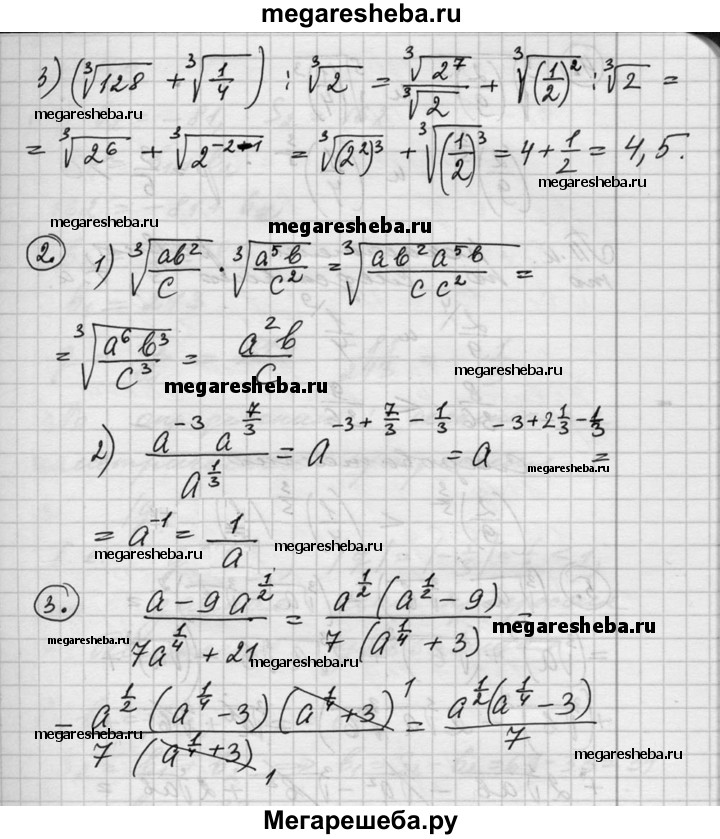 megaresheba.ru
3) (∛128 + ∛(1/4)) : ∛2 = ∛(2⁷)/∛2 + ∛((1/2)²) : ∛2 =
megaresheba.ru
= ∛(2⁶) + ∛(2⁻²⁻¹) = ∛((2²)³) + ∛((1/2)³) = 4 + 1/2 = 4,5.
megaresheba.ru
megaresheba.ru
megaresheba.ru
2. 1) ∛(ab²/c) · ∛(a⁵b/c²) = ∛(ab²a⁵b/(cc²)) =
= ∛(a⁶b³/c³) = a²b/c
megaresheba.ru
megaresheba.ru
2) (a^(-3) a^(7/3))/a^(1/3) = a^(-3+7/3-1/3) = a^(-3+2 1/3-1/3) =
megaresheba.ru
= a⁻¹ = 1/a
megaresheba.ru
megaresheba.ru
3. (a - 9a^(1/2))/(7a^(1/4) + 21) = (a^(1/2)(a^(1/2) - 9))/(7(a^(1/4) + 3)) =
megaresheba.ru
megaresheba.ru
megaresheba.ru
= (a^(1/2)(a^(1/4) - 3)(a^(1/4) + 3) 1)/(7(a^(1/4) + 3) 1) = (a^(1/2)(a^(1/4) - 3))/7
megaresheba.ru
megaresheba.ru
Мегарешеба.ру